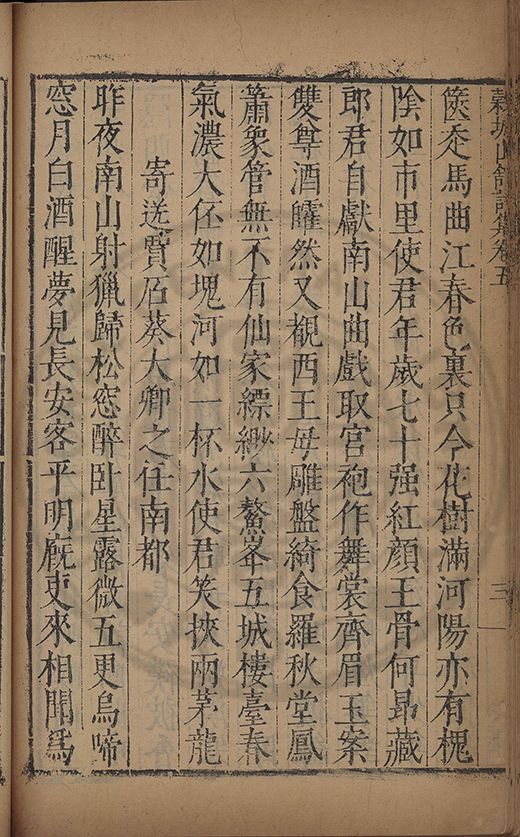 穀城山館詩集卷五
三
篋走馬曲江春色裏只今花樹滿河陽亦有槐
陰如市里使君年歲七十强紅顔玉骨何昂藏
郎君自獻南山曲戲取宮袍作舞裳齊眉玉案
雙尊酒矐然又覩西王母雕盤綺食羅秋堂鳳
簫象管無不有仙家縹緲六鰲峯五城樓臺春
氣濃大丕如塊河如一杯水使君笑挾兩茅龍
寄送賈石葵大卿之任南都
昨夜南山射獵歸松窓醉卧星露微五更烏啼
窓月白酒醒夢見長安客平明廐吏來相聞爲